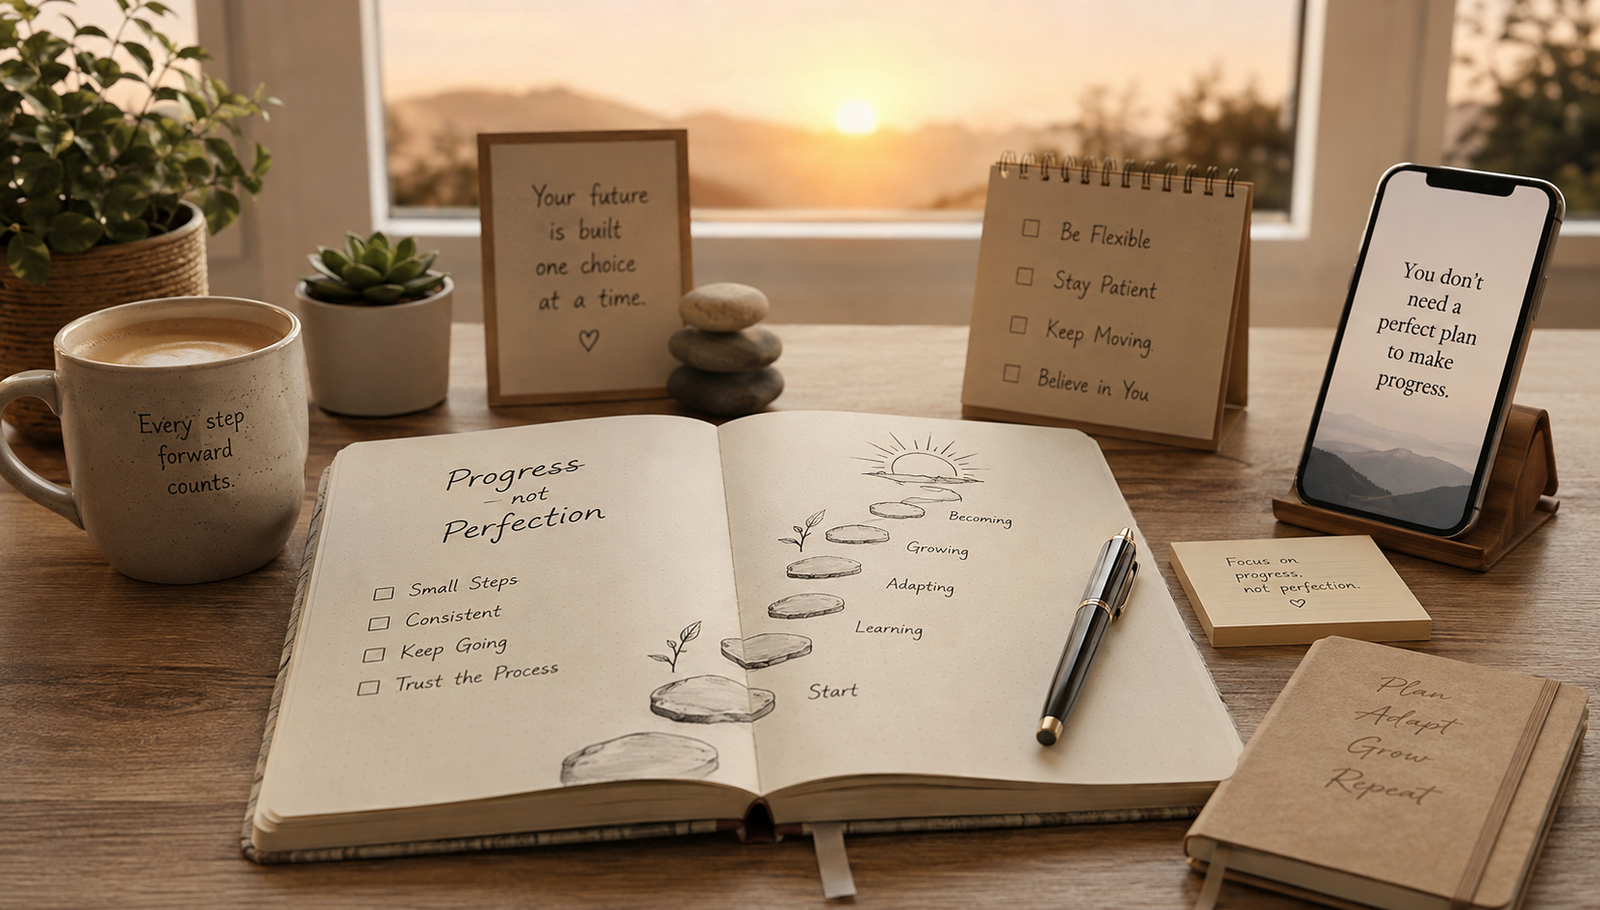 Your future
is built
one choice
at a time.
Be Flexible
Stay Patient
Keep Moving
Believe in You
You don't
need a
perfect plan
to make
progress.
Every step
forward
counts.
Progress
— not
Perfection
Small Steps
Consistent
Keep Going
Trust the Process
Becoming
Growing
Adapting
Learning
Start
Focus on
progress,
not perfection.
Plan
Adapt
Grow
Repeat